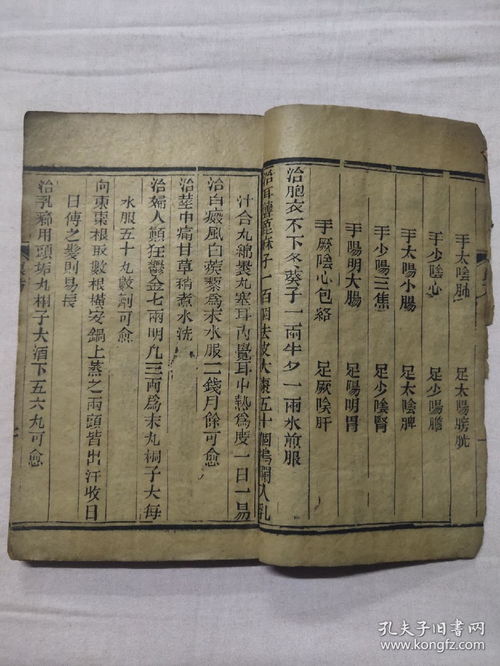 手太陰肺 足太陽膀胱
手少陰心 足少陽膽
手太陽小腸 足太陰脾
手少陽三焦 足少陰腎
手陽明大腸 足陽明胃
手厥陰心包絡 足厥陰肝
治胞衣不下冬葵子一兩牛夕一兩水煎服
治耳聾萆麻子一百個去皮大棗五十個搗爛入乳
汁合丸綿裹丸塞耳內覺耳中熱爲度一日一易
治白癜風白蒺藜爲末水服二錢月餘可愈
治莖中痛甘草稍煮水洗
治婦人顛狂鬱金七兩明凡三兩爲末丸桐子大每
水服五十丸數劑可愈
向東棗根取數根橫安鍋上蒸之兩頭皆出汗收日
日傅之髮則易長
治乳癤用頭垢丸桐子大酒下五六丸可愈
孔夫子旧书网
kongfz.com